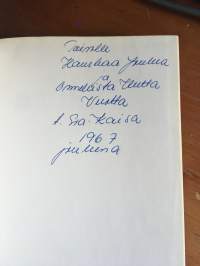 Hauskaa Joulua
ja
Onnellista Uutta
Vuotta
t. Eva-Kaisa
1967
jouluna